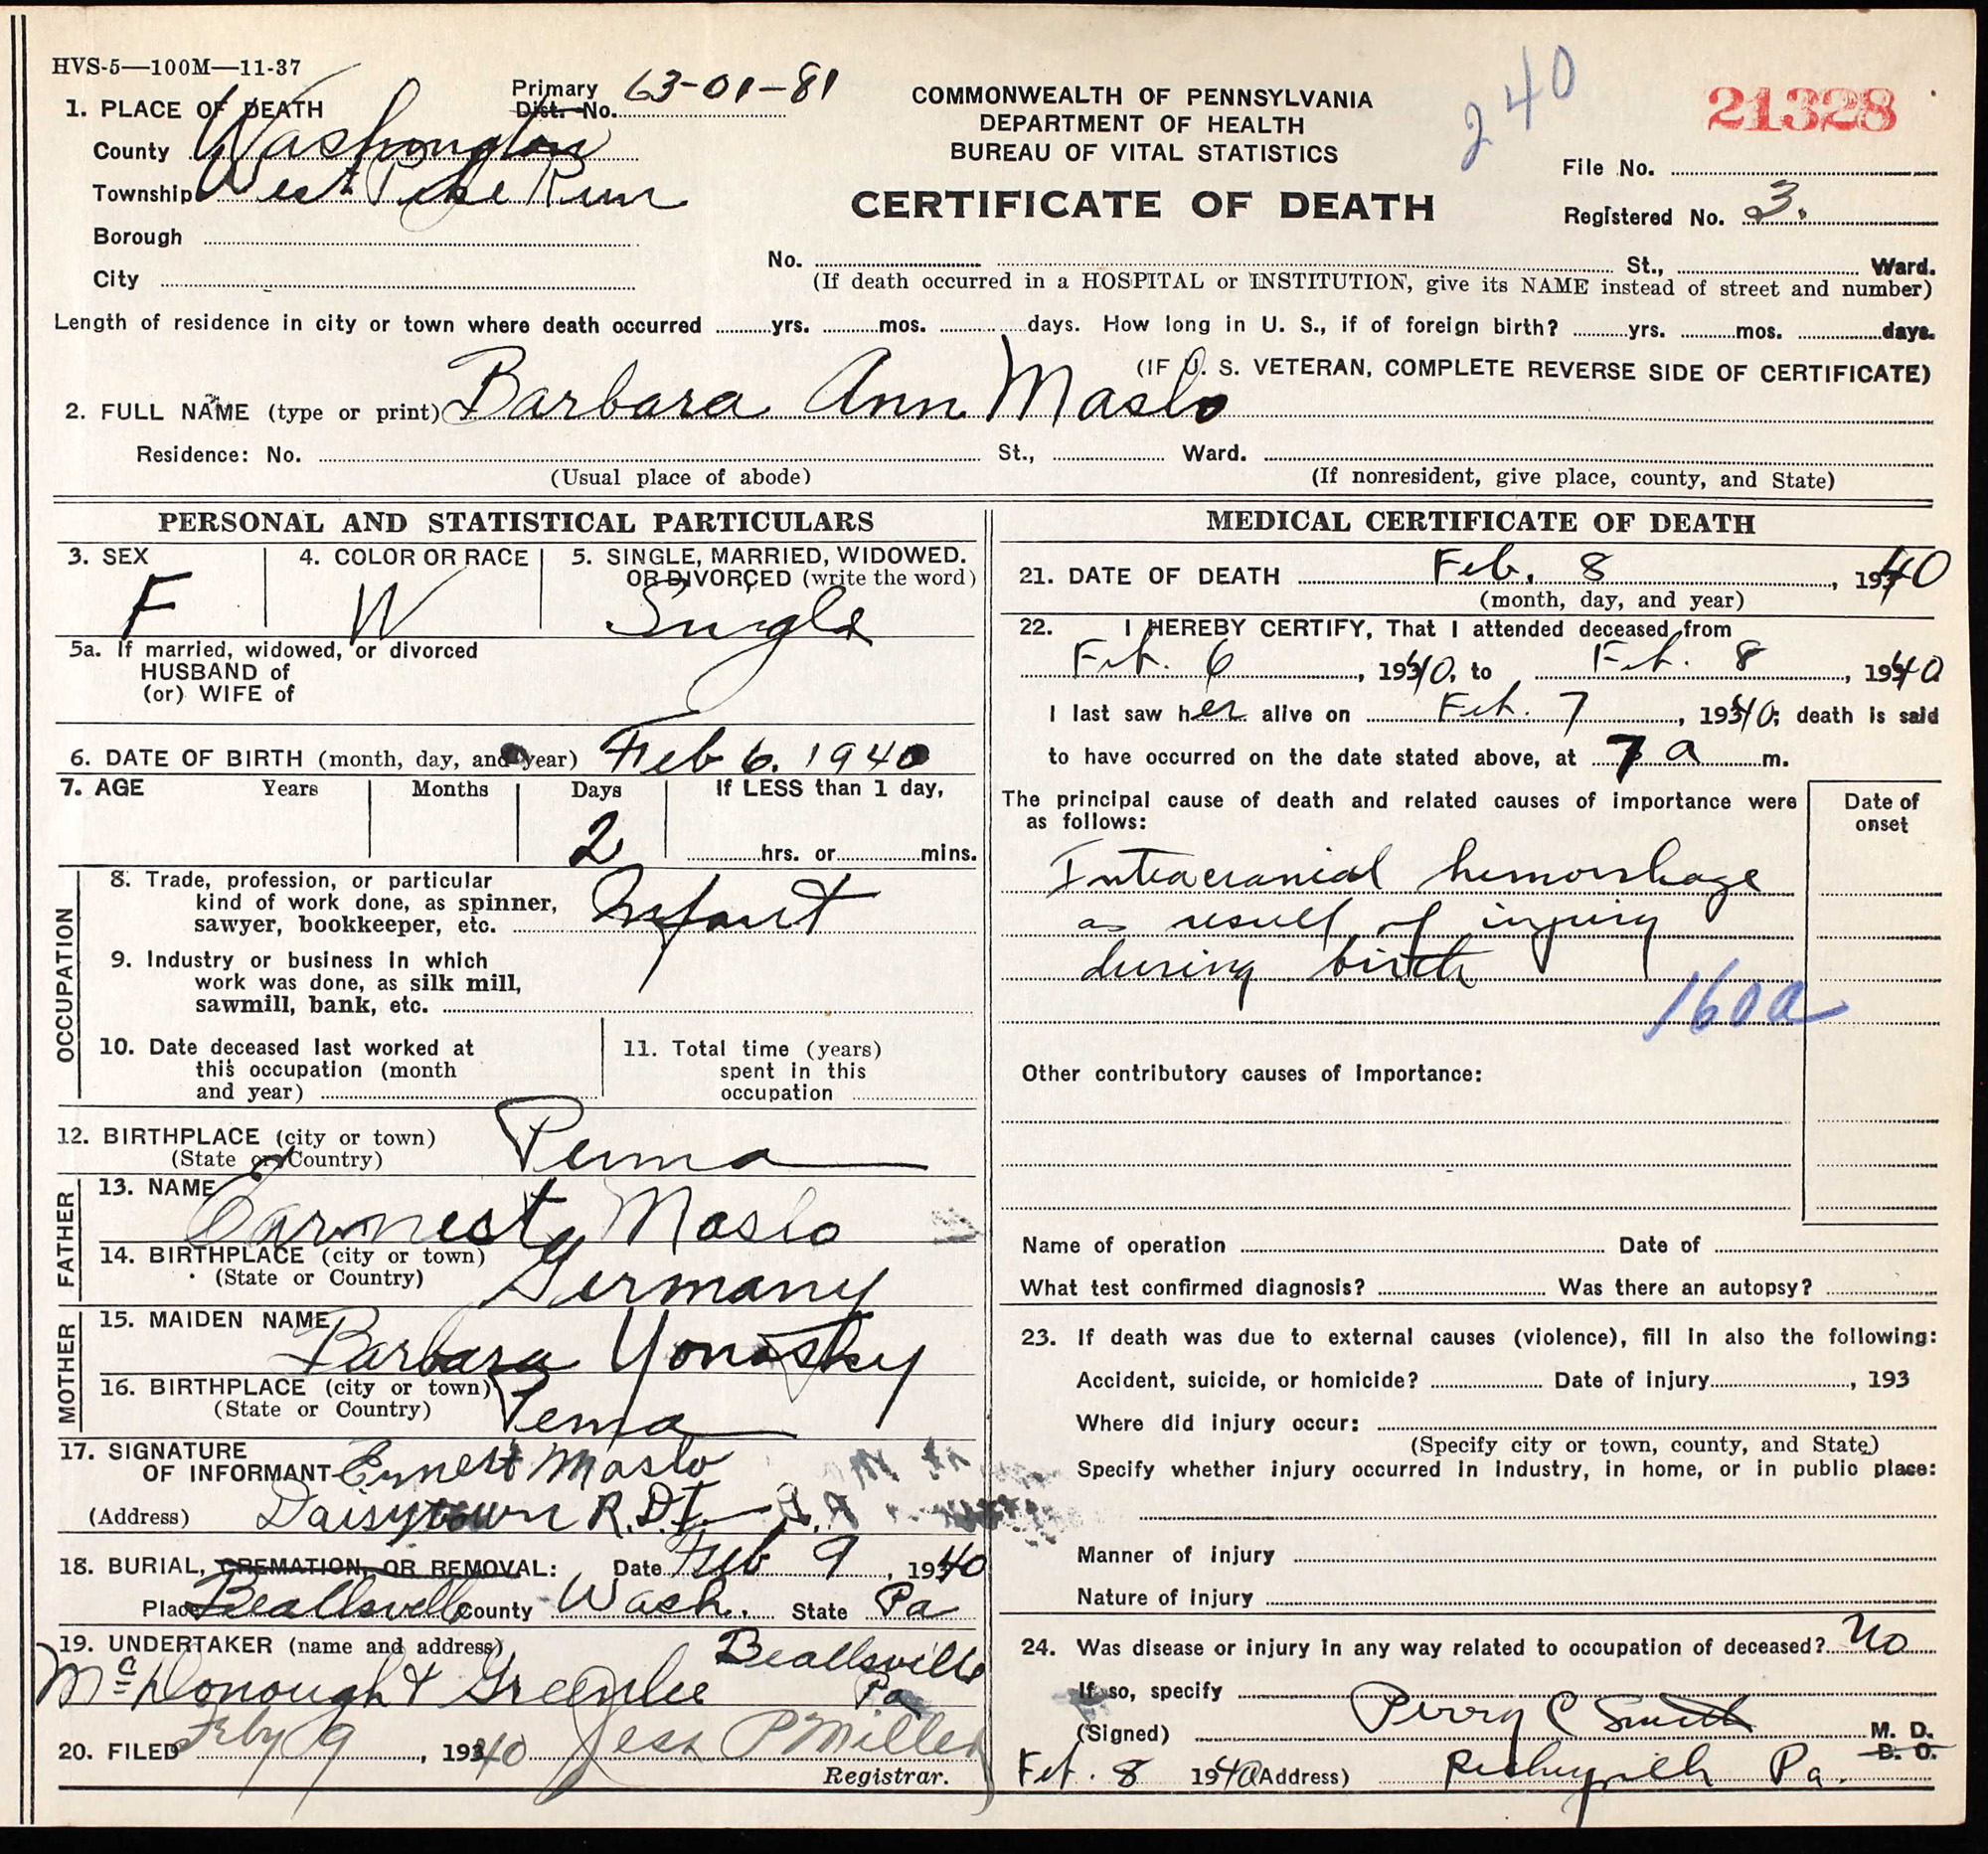 HVS-5—100M—11-37
1. PLACE OF DEATH
Primary Dist. No. 63-01-81
County Washington
Township West Pike Run
Borough
City
COMMONWEALTH OF PENNSYLVANIA
DEPARTMENT OF HEALTH
BUREAU OF VITAL STATISTICS
CERTIFICATE OF DEATH
240
21328
File No.
Registered No. 3.
No. St., Ward.
(If death occurred in a HOSPITAL or INSTITUTION, give its NAME instead of street and number)
Length of residence in city or town where death occurred yrs. mos. days. How long in U. S., if of foreign birth? yrs. mos. days.
(IF U. S. VETERAN, COMPLETE REVERSE SIDE OF CERTIFICATE)
2. FULL NAME (type or print) Barbara Ann Maslo
Residence: No. St., Ward.
(Usual place of abode) (If nonresident, give place, county, and State)
PERSONAL AND STATISTICAL PARTICULARS
3. SEX
F
4. COLOR OR RACE
W
5. SINGLE, MARRIED, WIDOWED.
OR DIVORCED (write the word)
Single
5a. If married, widowed, or divorced
HUSBAND of
(or) WIFE of
6. DATE OF BIRTH (month, day, and year) Feb 6. 1940
7. AGE Years Months Days If LESS than 1 day,
2 hrs. or mins.
OCCUPATION
8. Trade, profession, or particular
kind of work done, as spinner,
sawyer, bookkeeper, etc. Infant
9. Industry or business in which
work was done, as silk mill,
sawmill, bank, etc.
10. Date deceased last worked at
this occupation (month
and year)
11. Total time (years)
spent in this
occupation
12. BIRTHPLACE (city or town)
(State or Country) Penna
FATHER
13. NAME Earnest Maslo
14. BIRTHPLACE (city or town)
(State or Country) Germany
MOTHER
15. MAIDEN NAME Barbara Yonosky
16. BIRTHPLACE (city or town)
(State or Country) Penna
17. SIGNATURE
OF INFORMANT Ernest Maslo
(Address) Daisytown R.D.I.
18. BURIAL, CREMATION, OR REMOVAL: Date Feb 9, 1940
Place Beallsville County Wash. State Pa
19. UNDERTAKER (name and address) Beallsville
McDonough & Greenlee Pa
20. FILED Feby 9, 1940 Jess P Miller
Registrar.
MEDICAL CERTIFICATE OF DEATH
21. DATE OF DEATH Feb. 8, 1940
(month, day, and year)
22. I HEREBY CERTIFY, That I attended deceased from
Feb. 6, 1940, to Feb. 8, 1940
I last saw her alive on Feb. 7, 1940; death is said
to have occurred on the date stated above, at 7 a m.
The principal cause of death and related causes of importance were
as follows:
Date of
onset
Intracranial hemorrhage
as result of injury
during birth
160a
Other contributory causes of importance:
Name of operation Date of
What test confirmed diagnosis? Was there an autopsy?
23. If death was due to external causes (violence), fill in also the following:
Accident, suicide, or homicide? Date of injury, 193
Where did injury occur:
(Specify city or town, county, and State)
Specify whether injury occurred in industry, in home, or in public place:
Manner of injury
Nature of injury
24. Was disease or injury in any way related to occupation of deceased? No
If so, specify
(Signed) Perry C Smith M. D.
D. O.
Feb. 8 1940 (Address) Richeyville Pa.